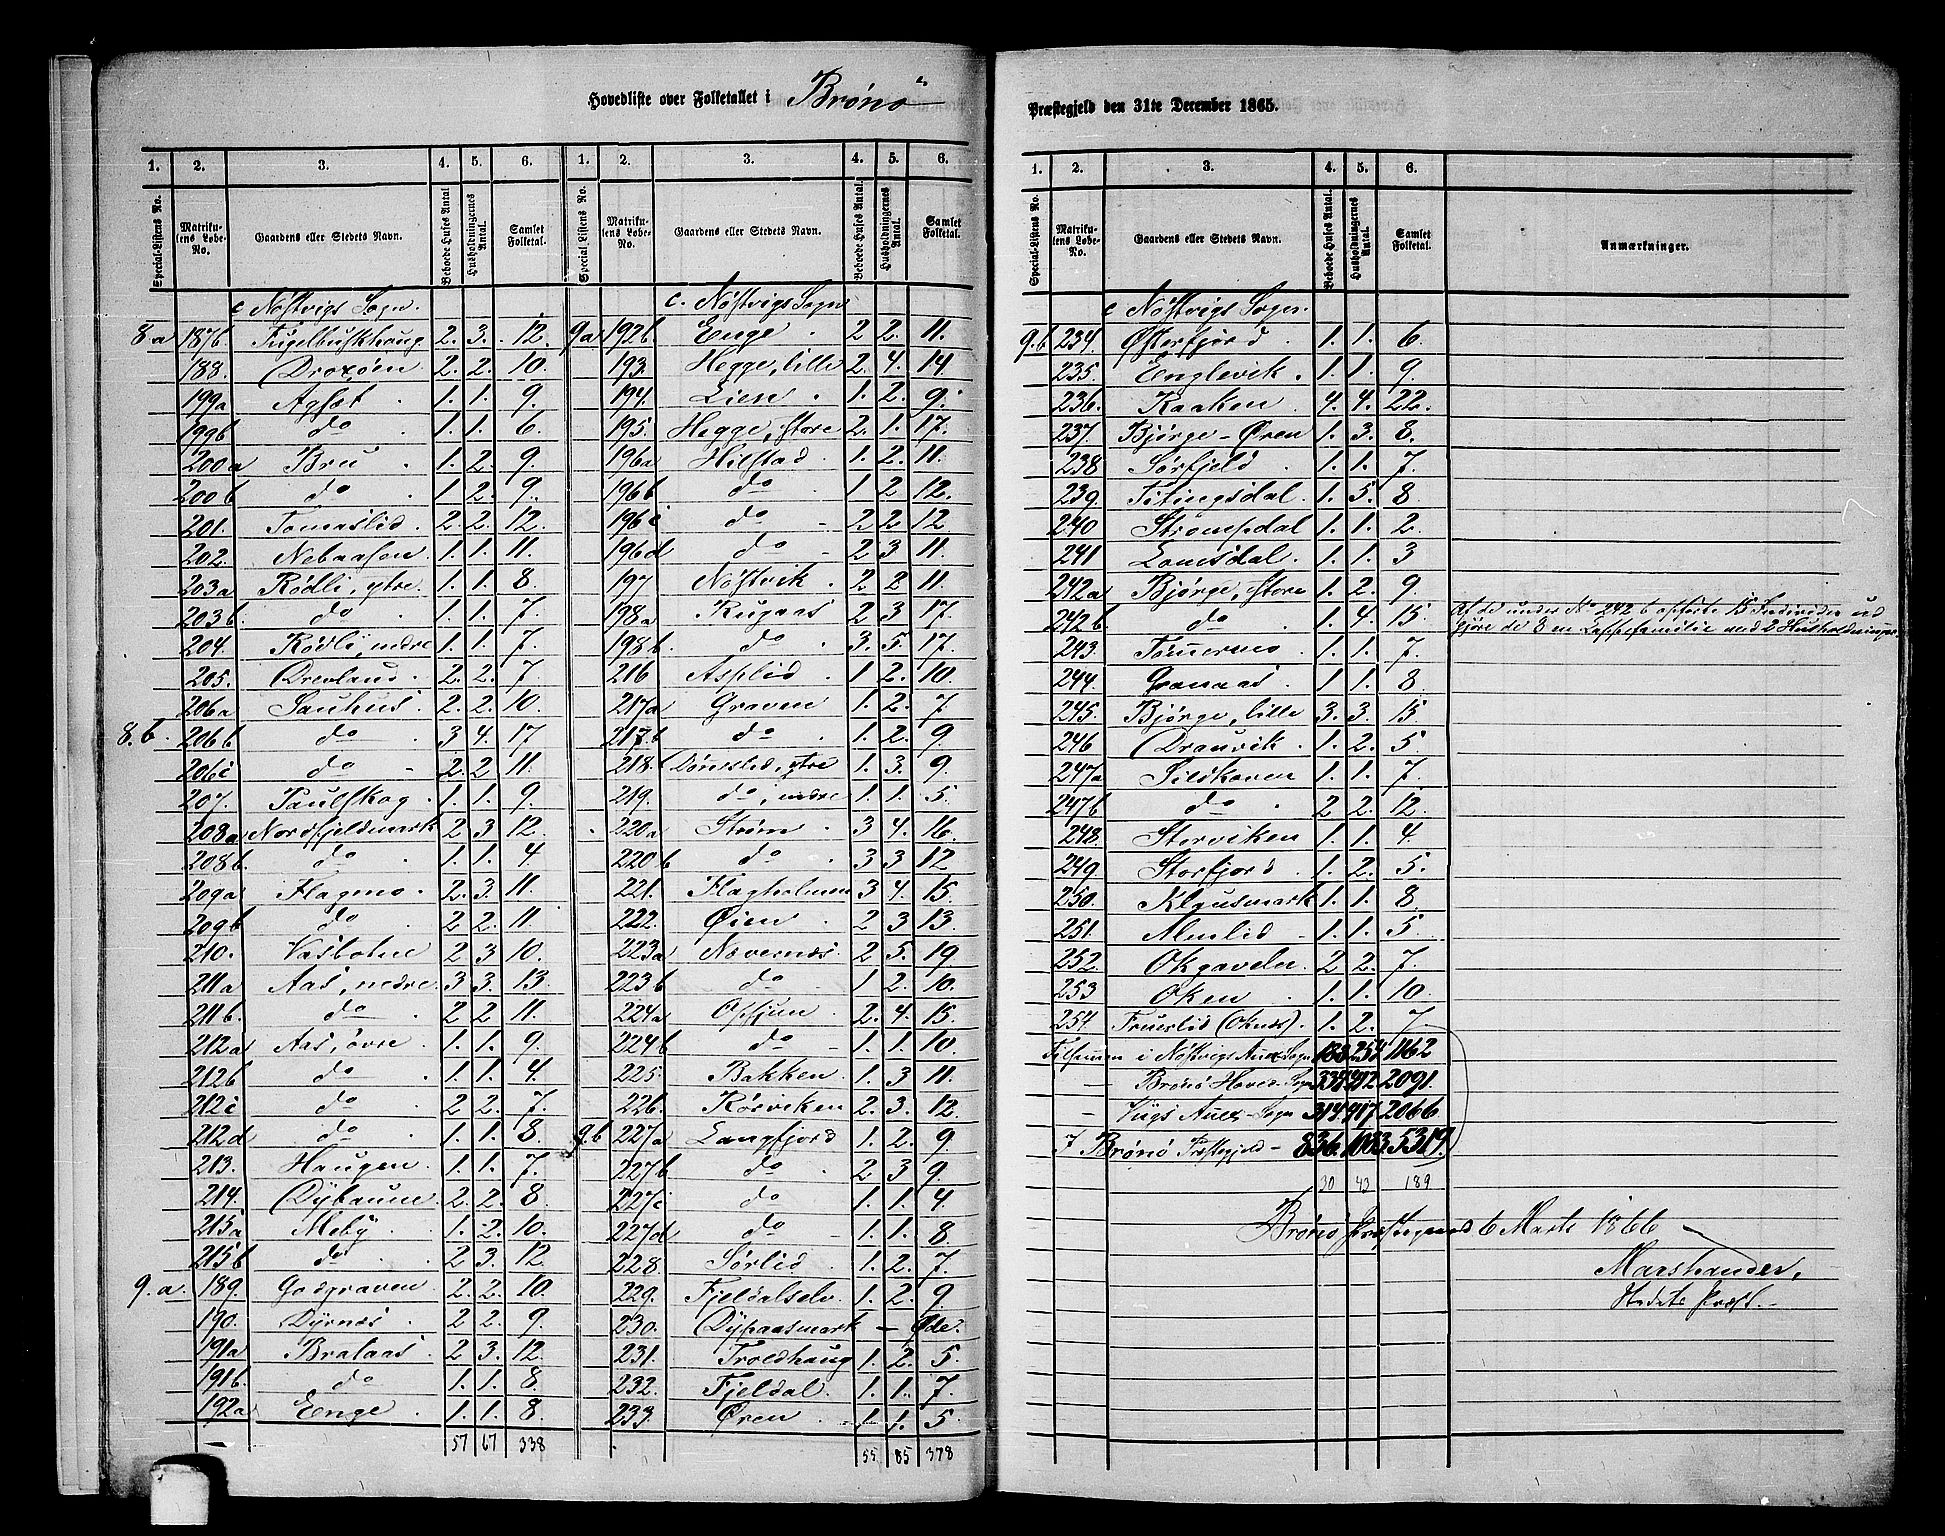 Hovedliste over Folketallet i Brønø
Præstegjeld den 31te December 1865.
1. 2. 3. 4. 5. 6. 1. 2. 3. 4. 5. 6.
Special-Listens No. Matrikulens Løbe-No. Gaardens eller Stedets Navn. Beboede Huses Antal Husholdningernes Antal. Samlet Folketal. Special-Listens No. Matrikulens Løbe-No. Gaardens eller Stedets Navn. Beboede Huses Antal. Husholdningernes Antal. Samlet Folketal.
c Nøstvigs Sogn.
8a 187b. Fugelbuskhaug 2. 3. 12.
188. Droxøen 2. 2. 10.
199a Agsæt 1. 1. 9.
199b do 1. 1. 6.
200a Bru 1. 2. 9.
200b do 1. 2. 9.
201. Tomaslid 2. 2. 12.
202. Nebaasen 1. 1. 11.
203a Rødli, ytre 1. 1. 8.
203b do 1. 1. 7.
204. Rødli, indre 1. 1. 7.
205. Drevland 2. 2. 7.
206a Sauhus 2. 2. 10.
8.b. 206b do 3 4. 17
206c do 2. 2 11.
207. Paulskog 1. 1. 9.
208a Nordfjeldmark 2 3. 12.
208b. do 1. 1. 4.
209a Flagmo 2. 3. 11.
209b do 2 2. 11
210. Vasbotne 2 3 10.
211a Aas, nedre 3 3. 13.
211b. do 2 2 11.
212a Aas, øvre 1. 1. 9
212b do 1. 1. 4.
212c do 2 2. 7.
212d do 1. 1. 8.
213. Haugen 1. 1. 7.
214. Dybaune 2. 2. 8.
215a Moby 1. 2. 10.
215b do 2 3. 12.
9.a. 189. Godgraven 2. 2. 10.
190. Dyrnæs 2 2. 9.
191a Brataas 2 3. 12.
191b. do 1. 1. 8.
192a Enge 1. 1. 8.
57 67 338
c. Nøstvigs Sogn
9a 192b Enge 2 2. 11.
193. Hegge, lille 2. 4. 14.
194. Lien 1. 2. 9.
195. Hegge, store 2. 1. 17.
196a Hilstad 1. 2. 11.
196b do 1. 2 12.
196c do 2 2 12
196d do 2 3 11.
197 Nøstvik 2 2 11.
198a Rugaas 2 3 17.
198b. do 3. 5. 17.
216 Asplid 1 2. 10.
217a Graven 1. 2. 7
217b do 1. 2. 9
218. Dønneslid, ytre 1. 3. 9
219. do, indre 1. 1. 5.
220a Strøm 3 4. 16
220b do 3 3 12
221. Flagholmen 3 4. 15.
222. Øien 2 3 13.
223a Nævernæs 2 5. 19
223b do 1 2. 10.
224a Opsjun 2. 4. 15.
224b do 1. 1. 10.
225. Bakken 1. 3 11.
226. Rørviken 2. 3. 12.
9b 227a Langfjord 1. 2. 9
227b do 2 3 9.
227c do 1. 1. 4
227d do 1. 1. 8
228. Sørlid 1. 2. 7.
229. Fjeldalselv 1. 2. 9
230. Dypaasmark — Øde.
231. Troldhaug 1. 2. 5.
232. Fjeldal 1. 1. 7
233. Øren 1. 1. 5
55 85 378
1. 2. 3. 4. 5. 6.
Special-Listens No. Matrikulens Løbe-No. Gaardens eller Stedets Navn. Beboede Huses Antal. Husholdningernes Antal. Samlet Folketal. Anmærkninger.
c Nøstvigs Sogn.
9.b 234. Østerfjord 1. 1. 6
235. Englevik 1. 1. 9.
236. Kaaken 4. 4. 22.
237. Bjørge-Øren 1. 3. 8.
238 Sørfjeld 1. 1. 7.
239. Titingsdal 1. 5. 8
240 Strompdal 1. 1. 2.
241 Lomsdal 1. 1. 3
242a Bjørge, store 1. 2. 9.
242b. do 1. 4. 15 Af de under No 242b opførte 15 Individer ud
gjøre de 8 en Lappefamilie med 2 Husholdninger
243. Tømmermo 1. 1. 7.
244. Granaas 1. 1. 8
245. Bjørge, lille 3. 3. 15
246 Drauvik 1. 2. 5
247a Sildhaven 1. 1. 7.
247b do 2 2. 12.
248. Storviken 1. 1. 4.
249. Storfjord 1. 2. 5.
250. Klausmark 1. 1. 8
251. Almlid 1. 1. 5.
252. Okgavelen 2 2. 7
253 Oken 1. 1. 10.
254 Fruerlid (Oknæs). 1. 2. 7
Tilsammen i Nøstvigs Anex Sogn 188 254 1162
— Brønø Hoved-Sogn 334 412 2091.
— Vigs Anex-Sogn 314 417 2066
I Brønø Præstegjeld — 836. 1083 5319.
30 43 189
Brønø Præstegaard 6 Marts 1866
Marshander,
Stedets Præst.